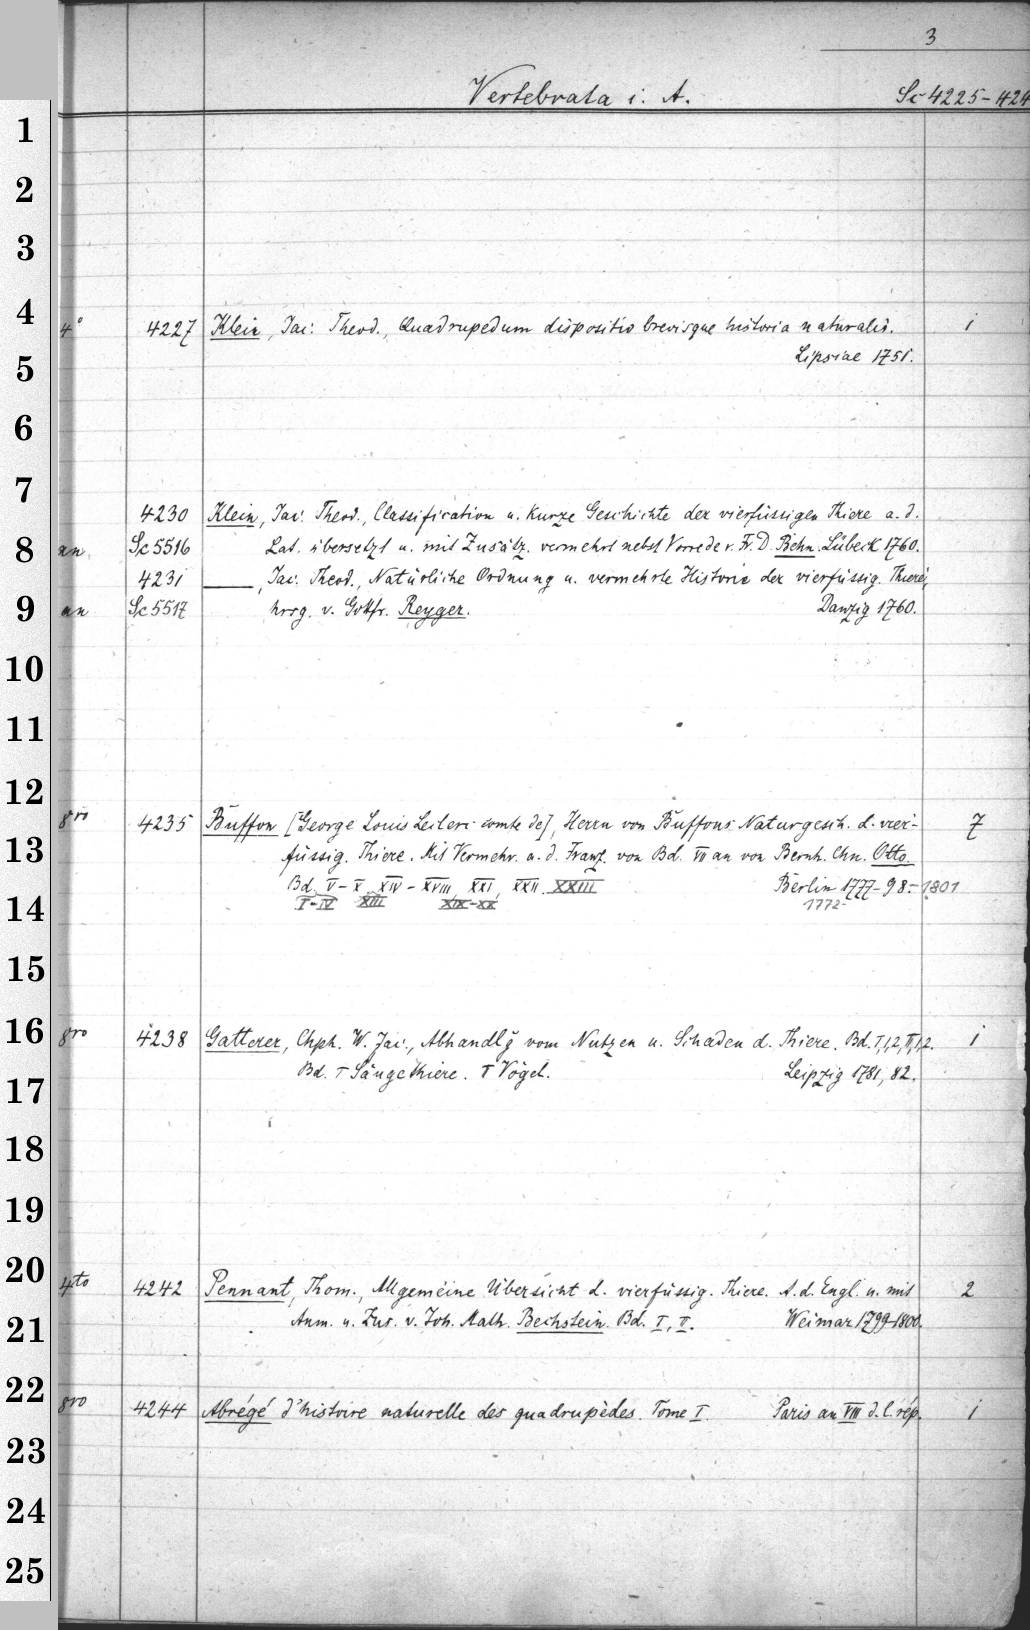 3
Vertebrata i. A. Sc 4225-424
1
2
3
4
4° 4227 Klein, Jac. Theod., Quadrupedum dispositio brevisque historia naturalis. 1
Lipsiae 1751.
5
6
7
4230 Klein, Jac. Theod., Classification u. kurze Geschichte der vierfüssigen Thiere a. d.
8
an Sc 5516 Lat. übersetzt u. mit Zusätz. vermehrt nebst Vorrede v. Fr. D. Behn. Lübeck 1760.
4231 ——, Jac. Theod., Natürliche Ordnung u. vermehrte Historie der vierfüssig. Thiere,
9
an Sc 5517 hrsg. v. Gottfr. Reyger. Danzig 1760.
10
11
12
8vo 4235 Buffon [George Louis Leclerc comte de], Herrn von Buffons Naturgesch. d. vier- 7
13
füssig. Thiere. Mit Vermehr. a. d. Franz. von Bd. VII an von Bernh. Chn. Otto
Bd. V-X, XIV-XVIII, XXI, XXII. XXIII Berlin 1777-98.-1801
14
I-IV XIII XIX-XX 1772-
15
16
8vo 4238 Gatterer, Chph. W. Jac., Abhandlg vom Nutzen u. Schaden d. Thiere. Bd. I,1,2,II,1,2. 1
17
Bd. I Säugethiere. II Vögel. Leipzig 1781, 82.
18
19
20
4to 4242 Pennant, Thom., Allgemeine Übersicht d. vierfüssig. Thiere. A. d. Engl. u. mit 2
21
Anm. u. Zus. v. Joh. Math. Bechstein. Bd. I, II. Weimar 1799-1800.
22
8vo 4244 Abrégé d'histoire naturelle des quadrupèdes. Tome I. Paris an VIII d. l. rép. 1
23
24
25